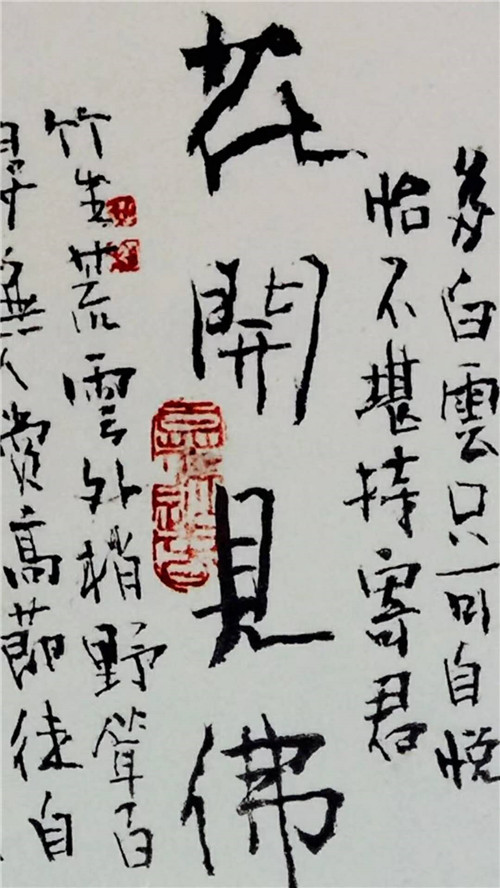 多白雲只可自悅
怡不堪持寄君
花開見佛
竹生荒雲外梢野聳百
尋無人賞高節徒自